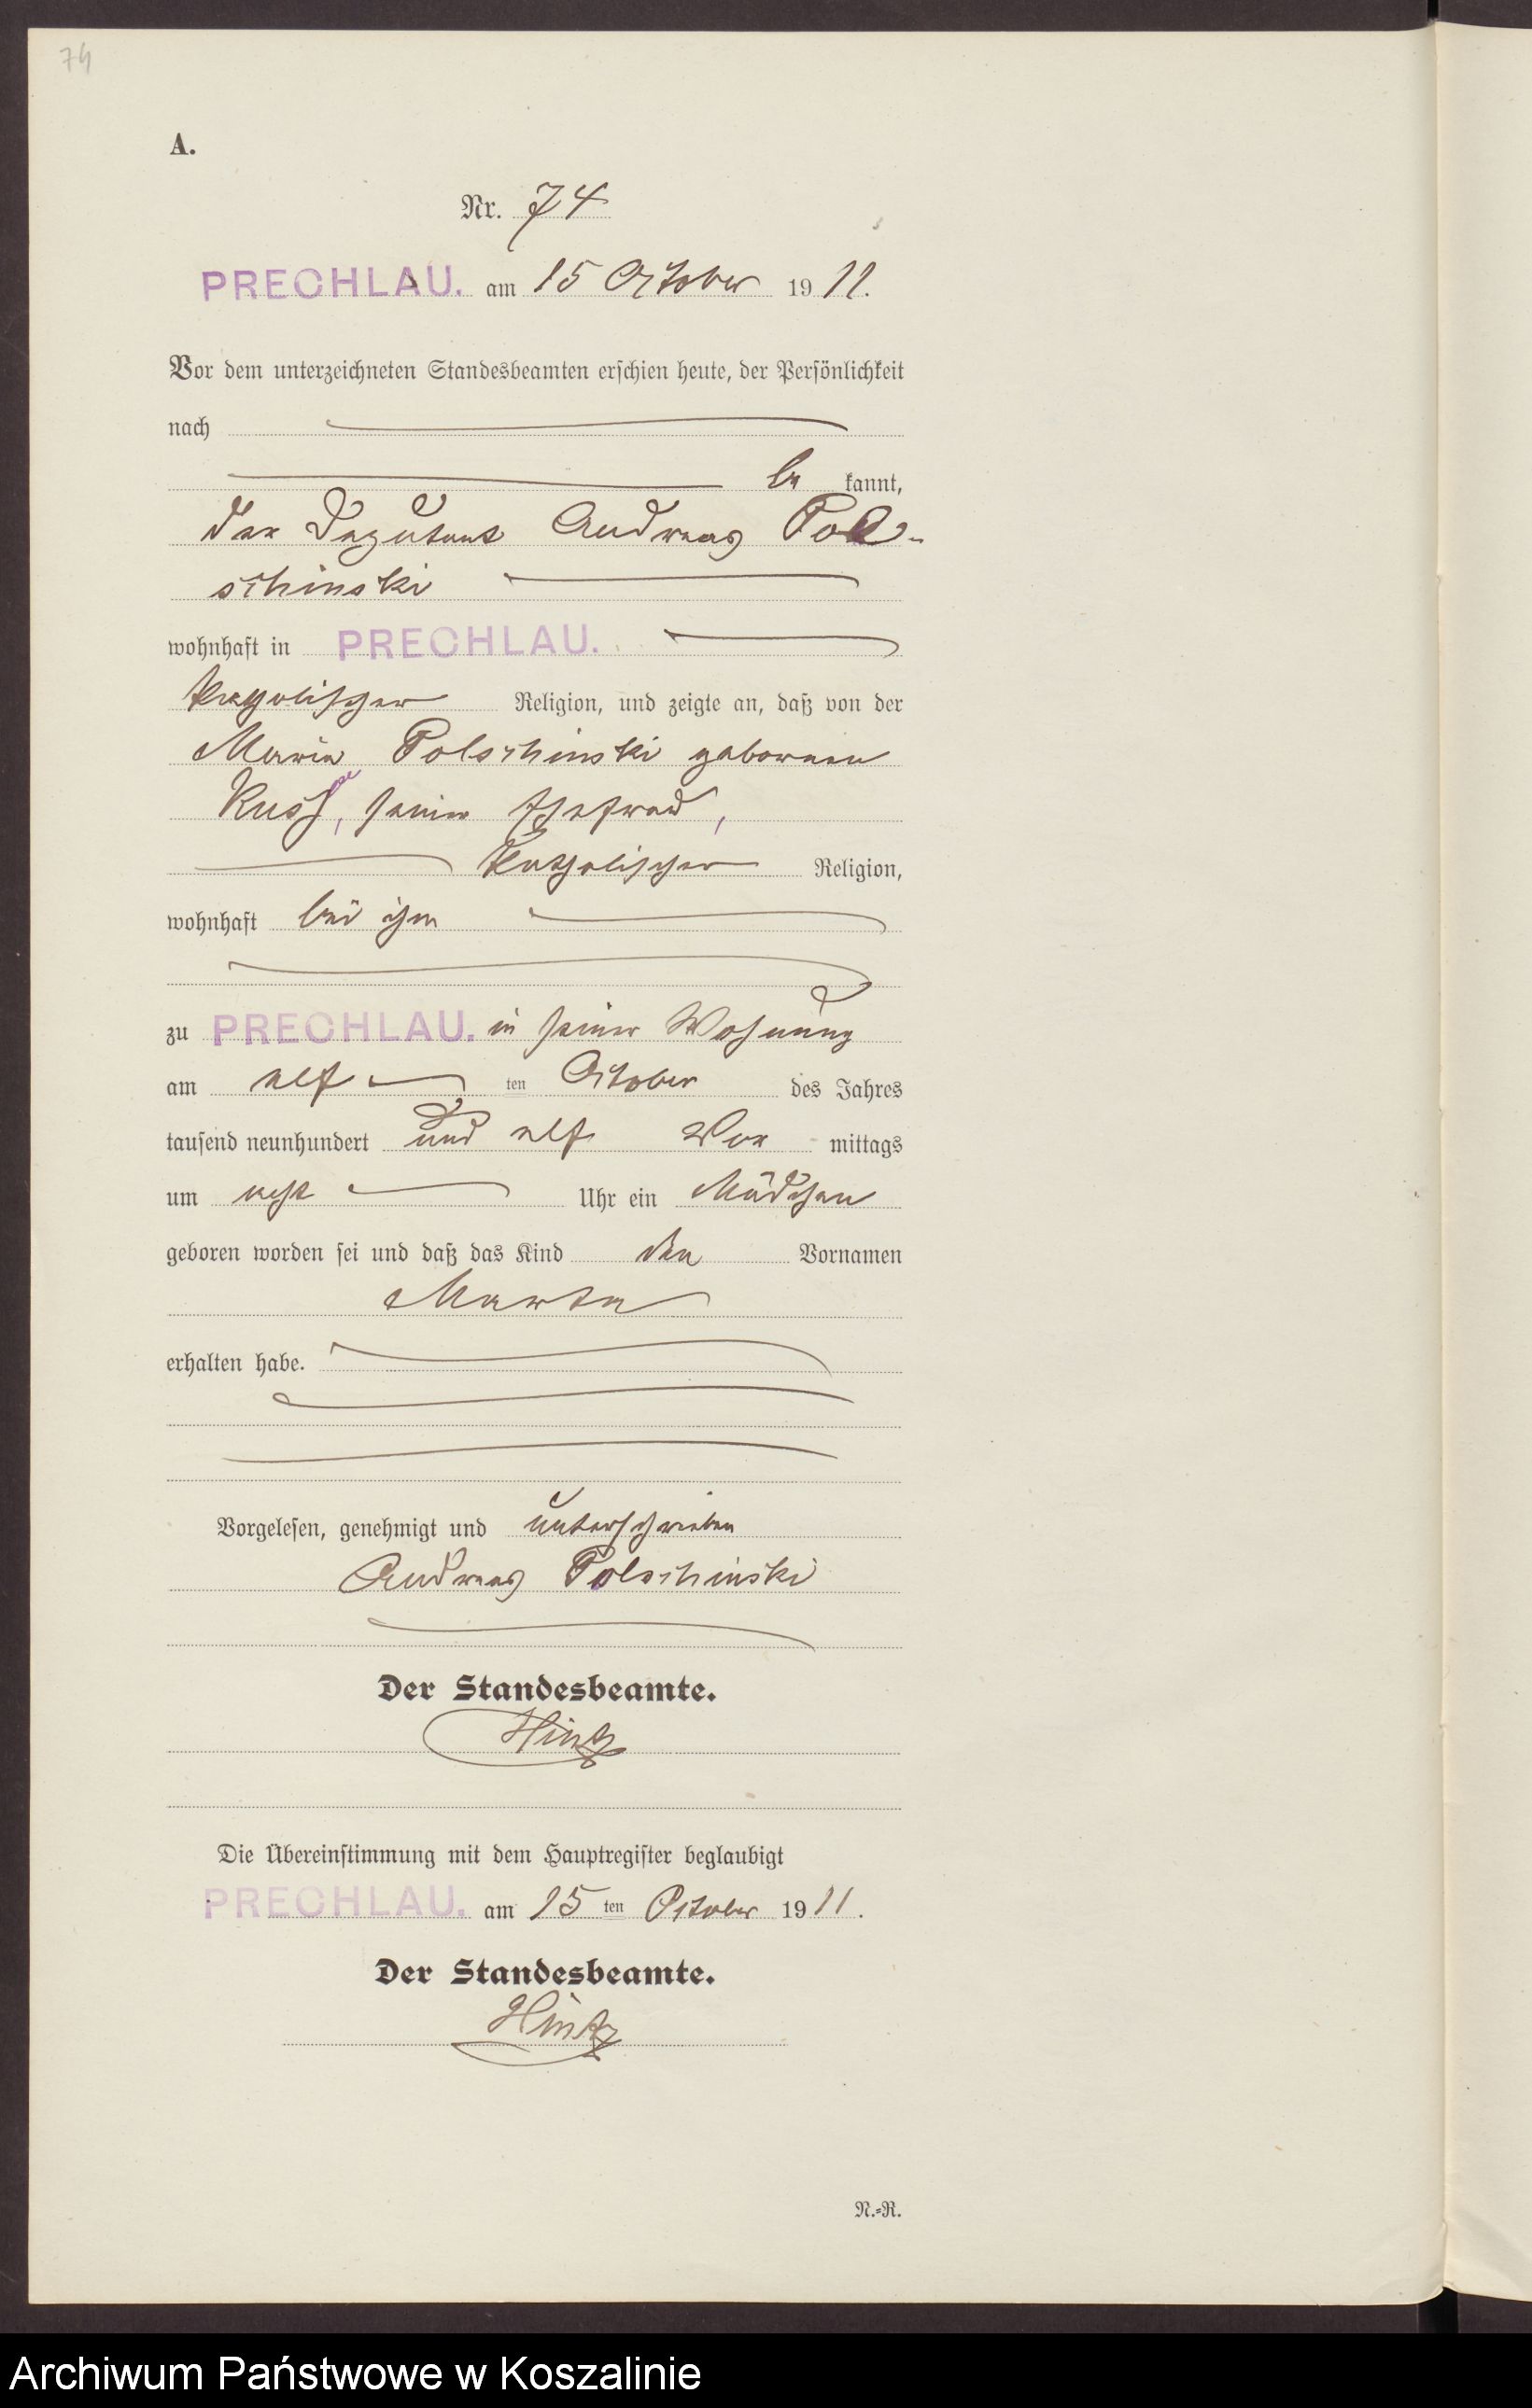 74
A.
Nr. 74
PRECHLAU. am 15 October 1911.
Vor dem unterzeichneten Standesbeamten erschien heute, der Persönlichkeit
nach
be kannt,
der Deputant Andreas Pol-
schinski
wohnhaft in PRECHLAU.
katholischer Religion, und zeigte an, daß von der
Maria Polschinski geborenen
seiner Ehefrau,
katholischer Religion,
wohnhaft bei ihm
zu PRECHLAU. in seiner Wohnung
am elf ten October des Jahres
tausend neunhundert und elf Vor mittags
um acht Uhr ein Mädchen
geboren worden sei und daß das Kind den Vornamen
Marta
erhalten habe.
Vorgelesen, genehmigt und unterschrieben
Andreas Polschinski
Der Standesbeamte.
Hintz
Die Übereinstimmung mit dem Hauptregister beglaubigt
PRECHLAU. am 15 ten October 1911.
Der Standesbeamte.
Hintz
N.=R.
Archiwum Państwowe w Koszalinie